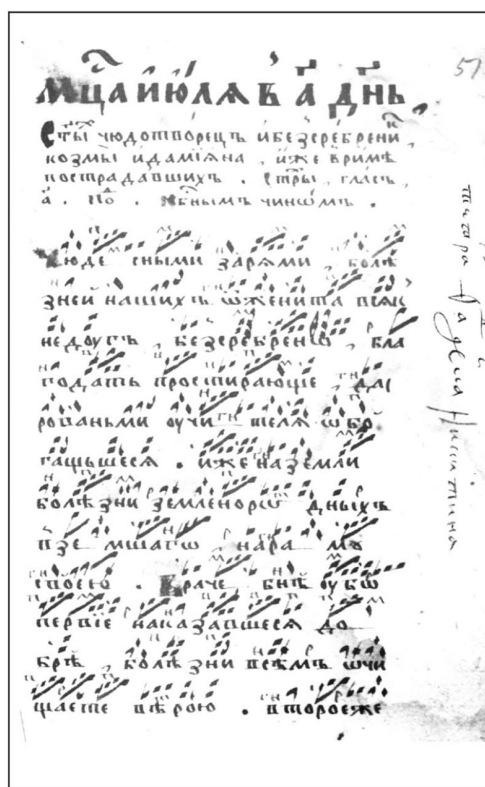 Мц҃а июля в҃ а҃ дн҃ь
ст҃ы чюдотворецъ ибезсребрени
козмы идамияна , иже вримѣ
пострадавшихъ . Стры , гласъ ,
а҃ . По . нб҃нымъ чиномъ .
Чюде сными зарями болѣ
зней нашихъ ѿжените всякъ
недоугъ , безсребреиѡ , бла
годать простирающе , да
рованьми оучи теля ѡбо
гащьшеся . иже на земли
болѣзни земленорѡ дныхъ
взе мшагѡ , нара мѣ
своею . Враче бнїе оубѡ
первїе наказавшеся до
брѣ , болѣзни всѣмъ ѡчи
щаете вѣрою . второеже
57